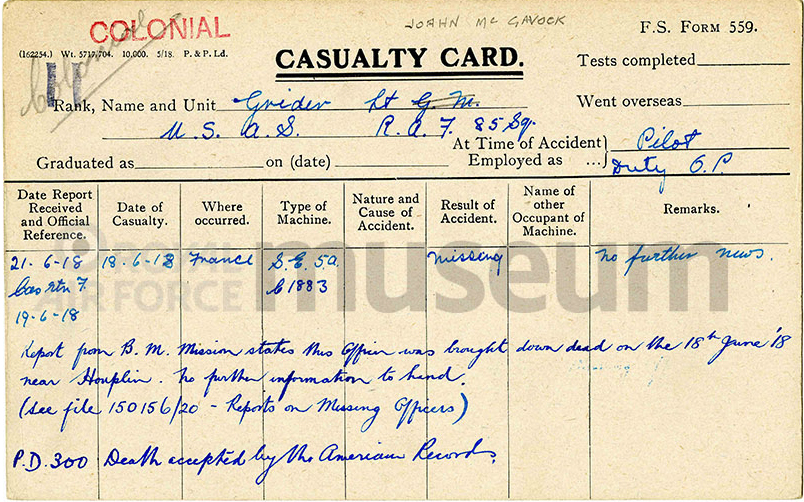 COLONIAL
JOAHN McGAVOCK
F.S. FORM 559.
(162254.) Wt. 5717,704. 10,000. 5/18. P. & P. Ld.
Colonial
CASUALTY CARD.
Tests completed
Rank, Name and Unit Grider Lt G.M.
Went overseas
U.S.A.S. R.A.F. 85 Sq.
At Time of Accident Employed as ... Pilot
Duty O.P
Graduated as on (date)
Date Report Received and Official Reference.
Date of Casualty.
Where occurred.
Type of Machine.
Nature and Cause of Accident.
Result of Accident.
Name of other Occupant of Machine.
Remarks.
21-6-18 18-6-18 France S.E.5a. Missing No further news.
Cas Rtn F. C1883
19-6-18
ROYAL AIR FORCE museum
Report from B.M. Mission states this Officer was brought down dead on the 18th June '18
near Houplin. No further information to hand.
(See file 150156/20 - Reports on Missing Officers)
P.D. 300 Death accepted by the American Records.